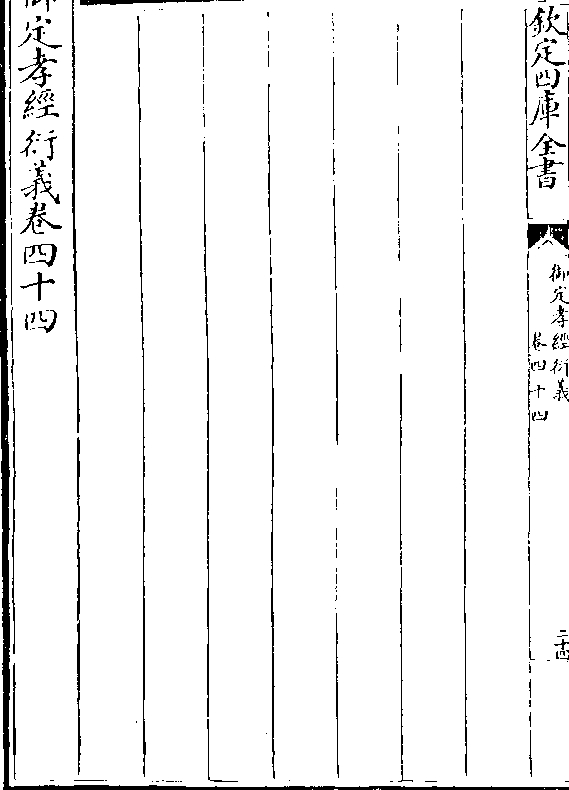 欽定四庫全書
御定孝經衍義
卷四十四
二十四
御定孝經衍義卷四十四